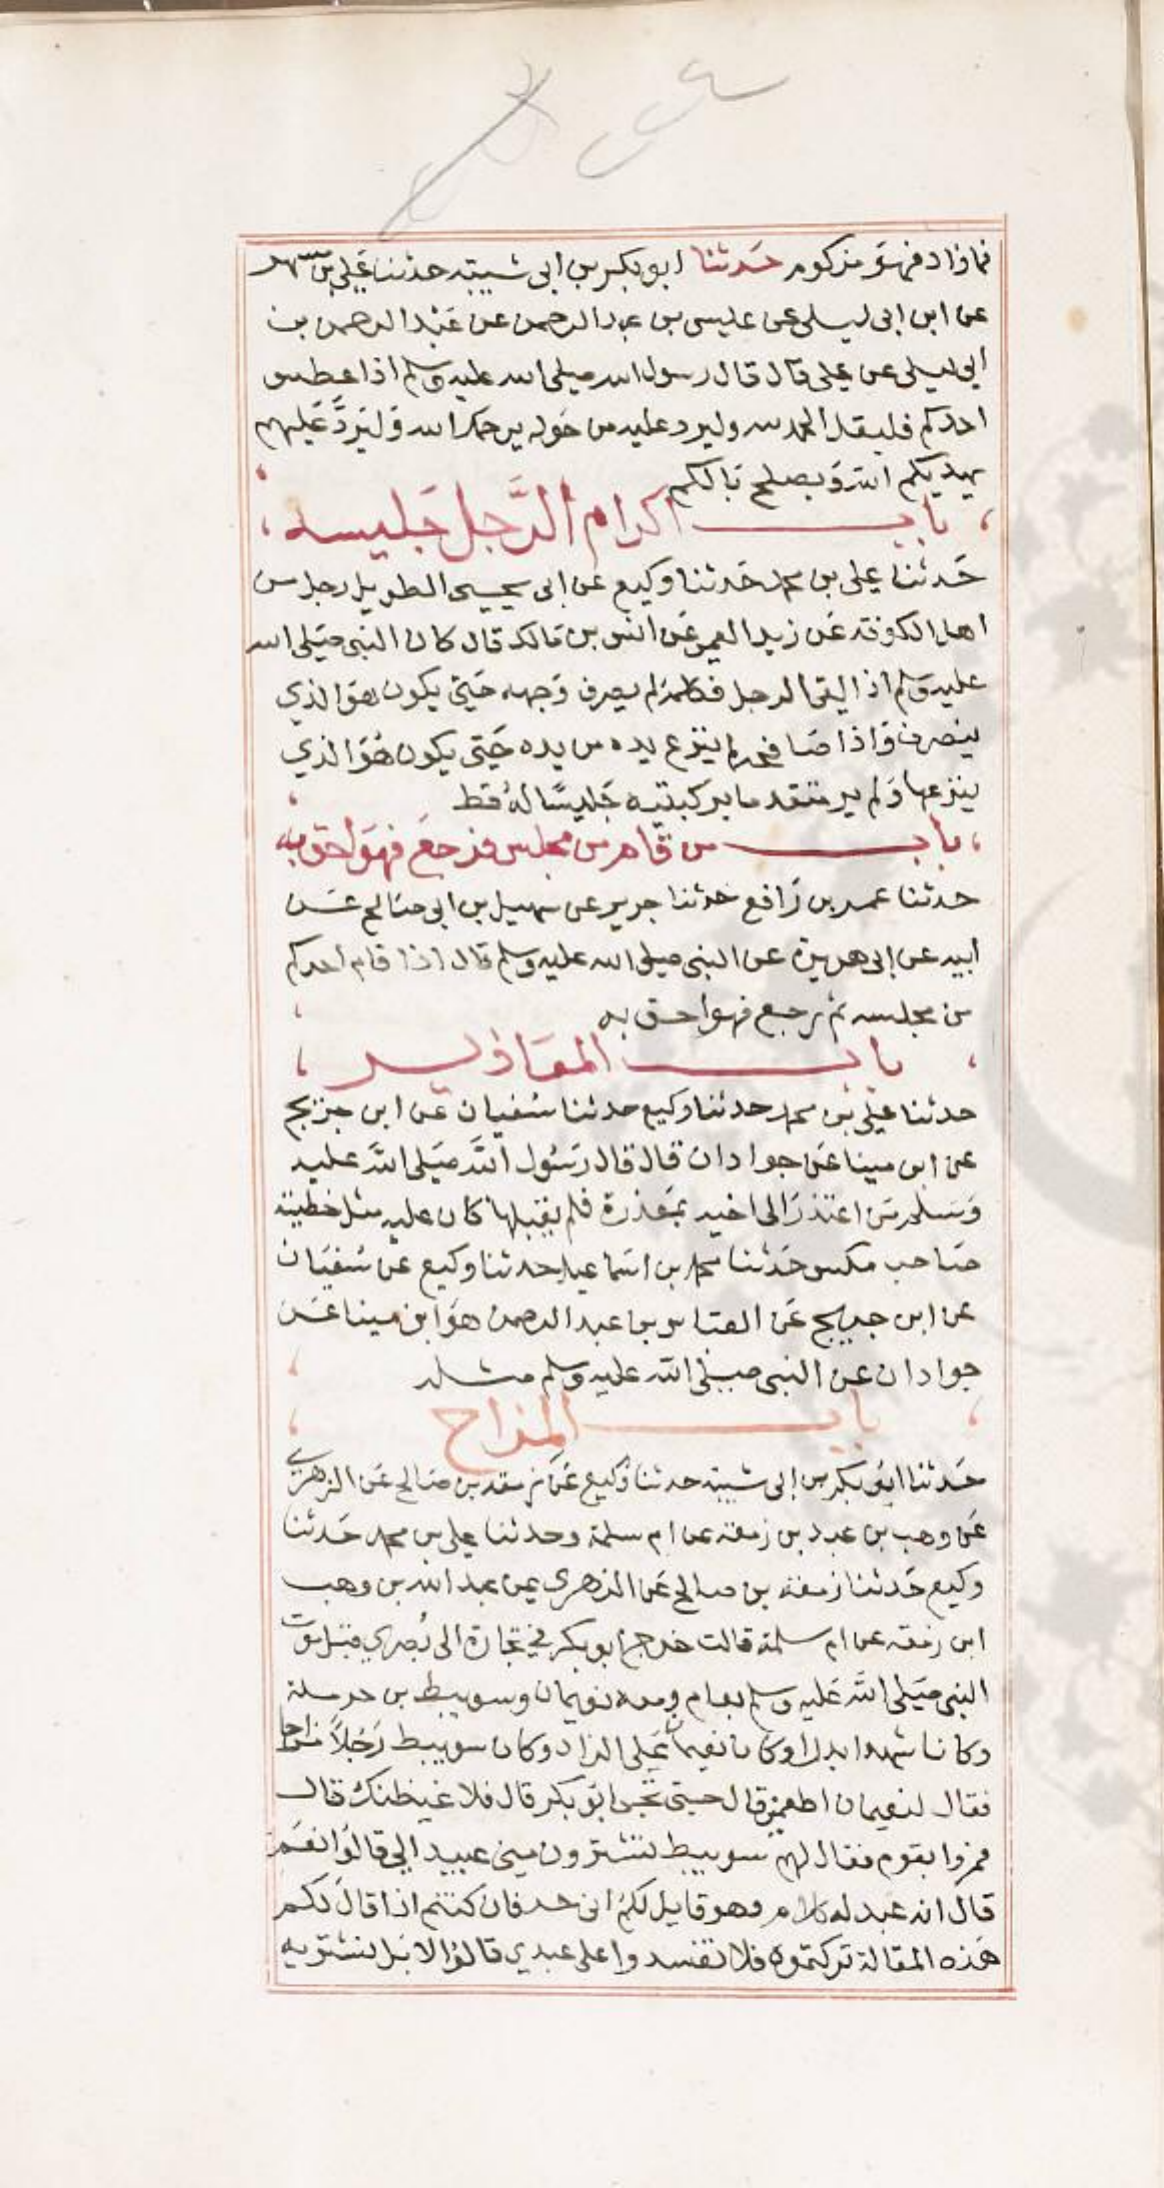 فما زاد فهو مزكوم حدثنا ابو بكر بن ابي شيبة حدثنا علي بن مسهر
عن ابن ابي ليلى عن عليسى بن عبد الرحمن عن عبد الرحمن بن
ابي ليلى عن علي قال قال رسول الله صلى الله عليه وسلم اذا عطس
احدكم فليقل الحمد لله وليرد عليه من حوله يرحمك الله وليرد عليهم
يهديكم الله ويصلح بالكم
باب اكرام الرجل جليسه
حدثنا علي بن محمد حدثنا وكيع عن ابي يحيى الطويل رجل من
اهل الكوفة عن زيد العمي عن انس بن مالك قال كان النبي صلى الله
عليه وسلم اذا لقي الرجل فكلمه لم يصرف وجهه حتى يكون هو الذي
ينصرف واذا صافحه لم ينزع يده من يده حتى يكون هو الذي
ينزعها ولم ير متقدما بركبتيه جليسا له قط
باب من قام من مجلس فرجع فهو احق به
حدثنا عمر بن رافع حدثنا جرير عن سهيل بن ابي صالح عن
ابيه عن ابي هريرة عن النبي صلى الله عليه وسلم قال اذا قام احدكم
من مجلسه ثم رجع فهو احق به
باب المعاذير
حدثنا علي بن محمد حدثنا وكيع حدثنا سفيان عن ابن جريج
عن ابن مينا عن جوادان قال قال رسول الله صلى الله عليه
وسلم من اعتذر الى اخيه بمعذرة فلم يقبلها كان عليه مثل خطيئة
صاحب مكس حدثنا محمد بن اسماعيل حدثنا وكيع عن سفيان
عن ابن جريج عن العباس بن عبد الرحمن هو ابن مينا عن
جوادان عن النبي صلى الله عليه وسلم مثله
باب المزاح
حدثنا ابو بكر بن ابي شيبة حدثنا وكيع عن زمعة بن صالح عن الزهري
عن وهب بن عبد بن زمعة عن ام سلمة وحدثنا علي بن محمد حدثنا
وكيع حدثنا زمعة بن صالح عن الزهري عن عبد الله بن وهب
ابن زمعة عن ام سلمة قالت خرج ابو بكر في تجارة الى بصري قبل موت
النبي صلى الله عليه وسلم بعام ومعه نعيمان وسويبط بن حرملة
وكانا شهدا بدرا وكان نعيمان على الزاد وكان سويبط رجلا مزاحا
فقال لنعيمان اطعمني قال حتى يجئ ابو بكر قال فلا غيظنك قال
فمروا بقوم فقال لهم سويبط تشترون مني عبيدا لي قالوا نعم
قال انه عبد له كلام وهو قايل لكم اني حر فان كنتم اذا قال لكم
هذه المقالة تركتموه فلا تفسدوا على عبدي قالوا لا بل نشتريه